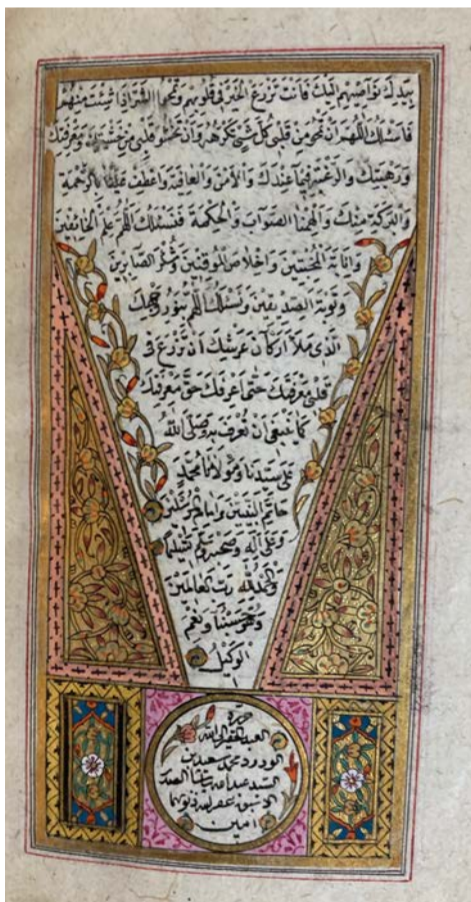 بيدك نواصيهم اليك فانت تزرع الخير في قلوبهم وتمحو الشر اذا شئت منهم
فاسئلك اللهم ان تمحو من قلبي كل شئ تكرهه وان تحشو قلبي من خشيتك ومعرفتك
ورهبتك والرغبة فيما عندك والامن والعافية واعطف علينا بالرحمة
والبركة منك والهمنا الصواب والحكمة فنسئلك اللهم علم الخائفين
وانابة المخبتين واخلاص الموقنين وشكر الصابرين
وتوبة الصديقين ونسئلك اللهم بنور وجهك
الذي ملأ اركان عرشك ان تزرع في
قلبي معرفتك حتى اعرفك حق معرفتك
كما ينبغي ان تعرف به وصلى الله
على سيدنا ومولانا محمد
خاتم النبيين وامام المرسلين
وعلى آله وصحبه وسلم تسليما
والحمد لله رب العالمين
وهو حسبنا ونعم
الوكيل
حرره
العبد الفقير الى الله
الودود محمد بن
السيد عبدالله
غفر الله ذنوبهما
امين